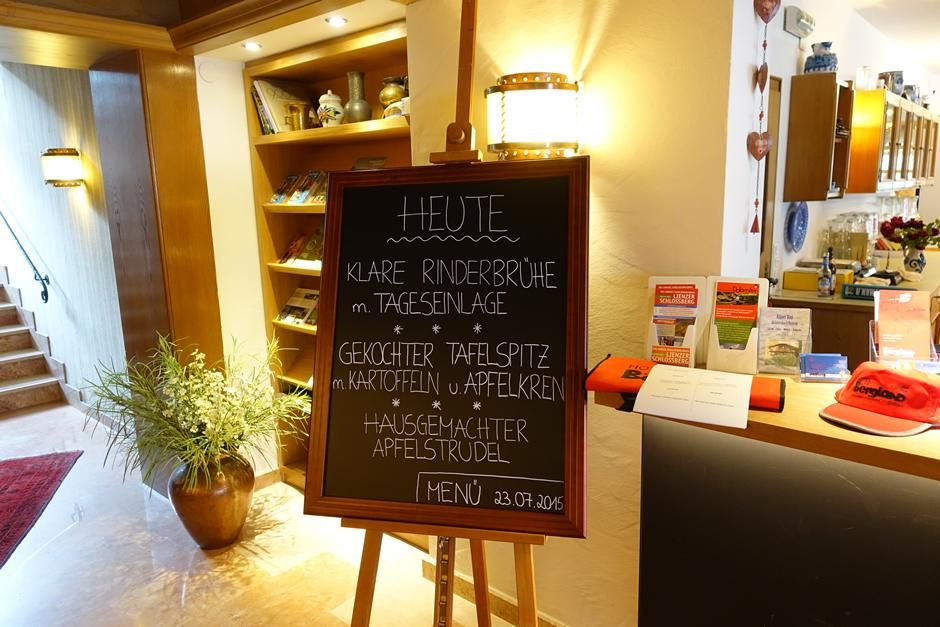 HEUTE
KLARE RINDERBRÜHE
m. TAGESEINLAGE
* * *
GEKOCHTER TAFELSPITZ
m. KARTOFFELN u. APFELKREN
* * *
HAUSGEMACHTER
APFELSTRUDEL
MENÜ 23.07.2015
LIENZER
SCHLOSSBERG
LIENZER
bergland